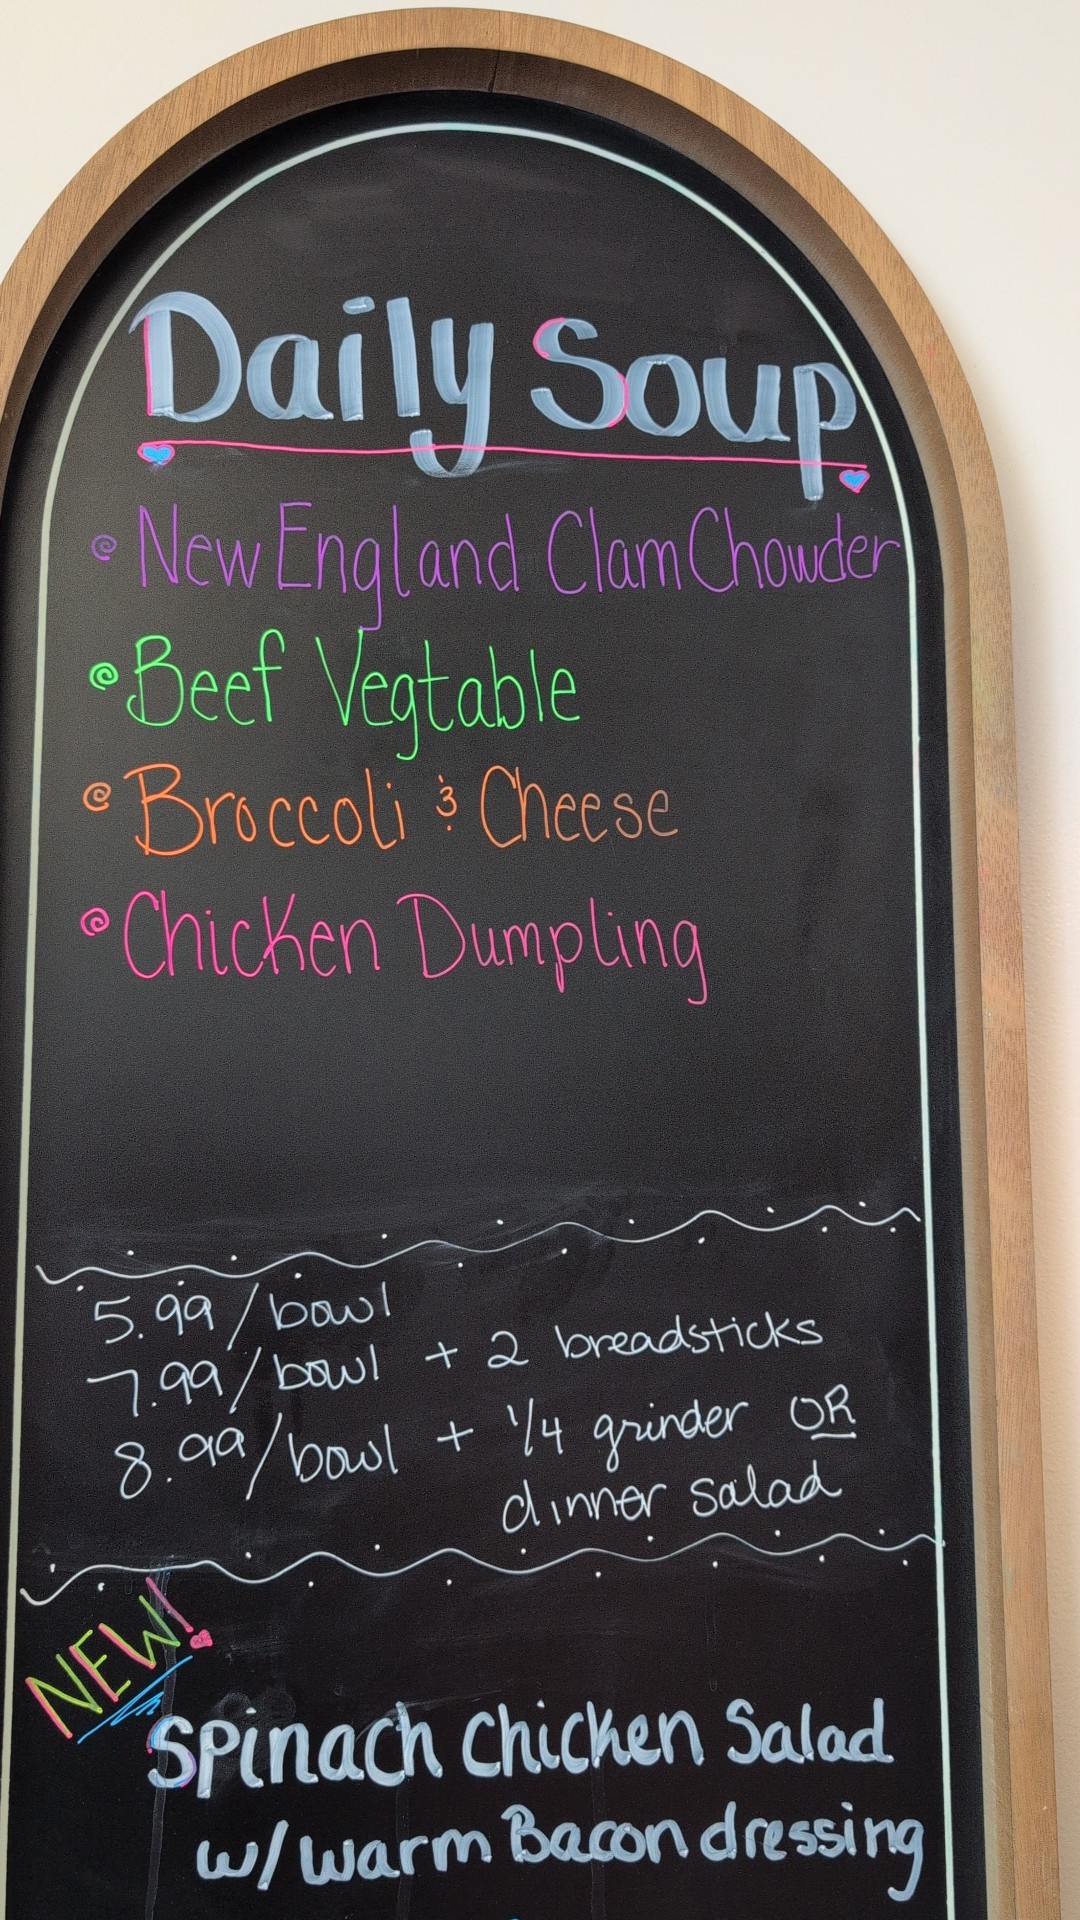 Daily Soup
New England Clam Chowder
Beef Vegtable
Broccoli & Cheese
Chicken Dumpling
5.99/bowl
7.99/bowl + 2 breadsticks
8.99/bowl + 1/4 grinder OR
dinner salad
NEW!
Spinach Chicken Salad
w/ warm Bacon dressing